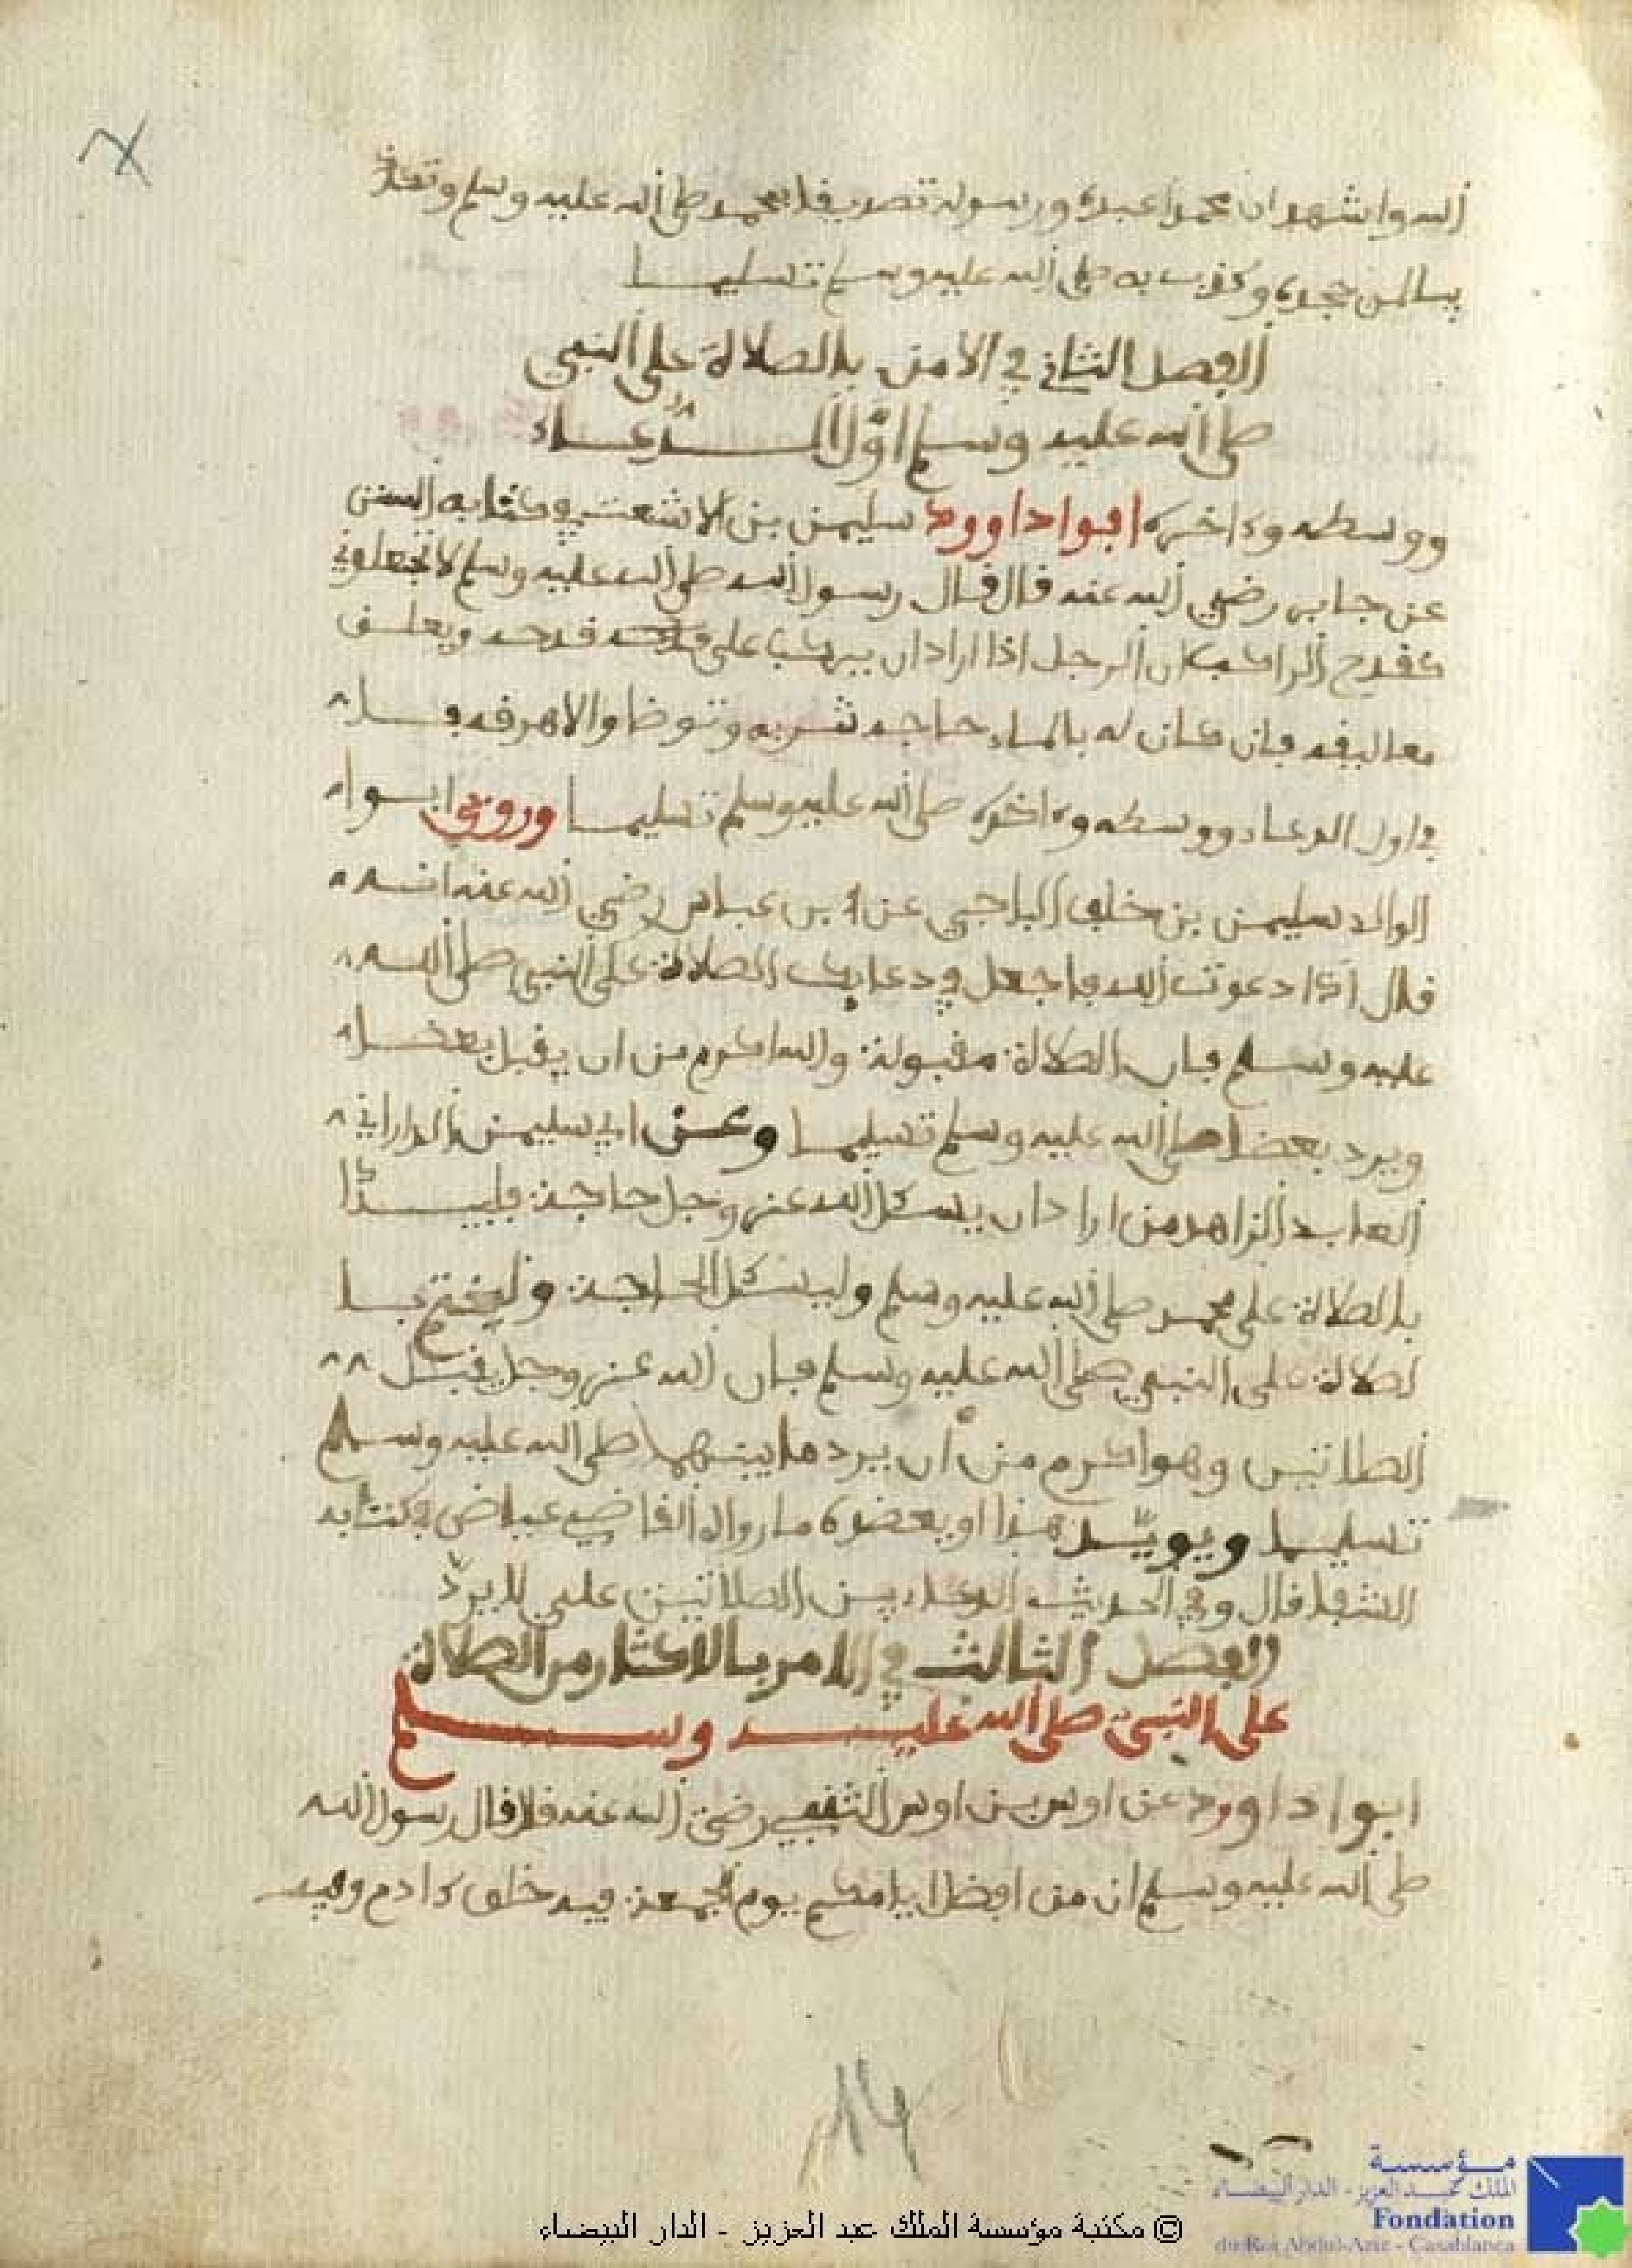 الله واشهد ان محمدا عبده ورسوله تصديقا بمحمد صلى الله عليه وسلم
لمن جحده وكذب به صلى الله عليه وسلم تسليما
الفصل الثاني في الامر بالصلاة على النبي
صلى الله عليه وسلم اوّل الدّعاء
ووسطه وءاخره ابوا داوود سليمن بن الاشعث في كتابه السنن
عن جابر رضي الله عنه قال قال رسول الله صلى الله عليه وسلم لا تجعلوني
كقدح الراكب ان الرجل اذا اراد ان يركب علق قدحه ويعلف
معاليقه فان كان له بالماء حاجة شربه وتوضا والا هرقه
في اول الدعاء ووسطه وءاخره صلى الله عليه وسلم تسليما وروى ابوا
الوالد سليمن بن خلف الباجي عن ابن عباس رضي الله عنه انه
قال اذا دعوت الله فاجعل في دعايك الصلاة على النبي صلى الله
عليه وسلم فان الصلاة مقبولة والله اكرم من ان يقبل بعضا
ويرد بعضا صلى الله عليه وسلم تسليما وعن ابي سليمن الداراني
العابد الزاهد من اراد ان يسئل الله عز وجل حاجة فليبدا
بالصلاة على محمد صلى الله عليه وسلم وليسئل الحاجة وليختم با
لصلاة على النبي صلى الله عليه وسلم فان الله عز وجل يقبل
الصلاتين وهو اكرم من ان يرد ما بينهما صلى الله عليه وسلم
تسليما ويويّد هذا او بعضه ما رواه القاضي عياض في كتابه
الشفا قال وفي الحديث الدعاء بين الصلاتين علي لا يردّ
الفصل الثالث في الامر بالاكثار من الصلاة
على النبي صلى الله عليه وسلم
ابوا داوود عن اوس بن اوس الثقفي رضي الله عنه قال قال رسول الله
صلى الله عليه وسلم ان من افضل ايامكم يوم الجمعة فيه خلق ءادم وفيه
14
© مكتبة مؤسسة الملك عبد العزيز - الدار البيضاء
مؤسسة
الملك عبد العزيز - الدار البيضاء
Fondation
du Roi Abdul-Aziz - Casablanca